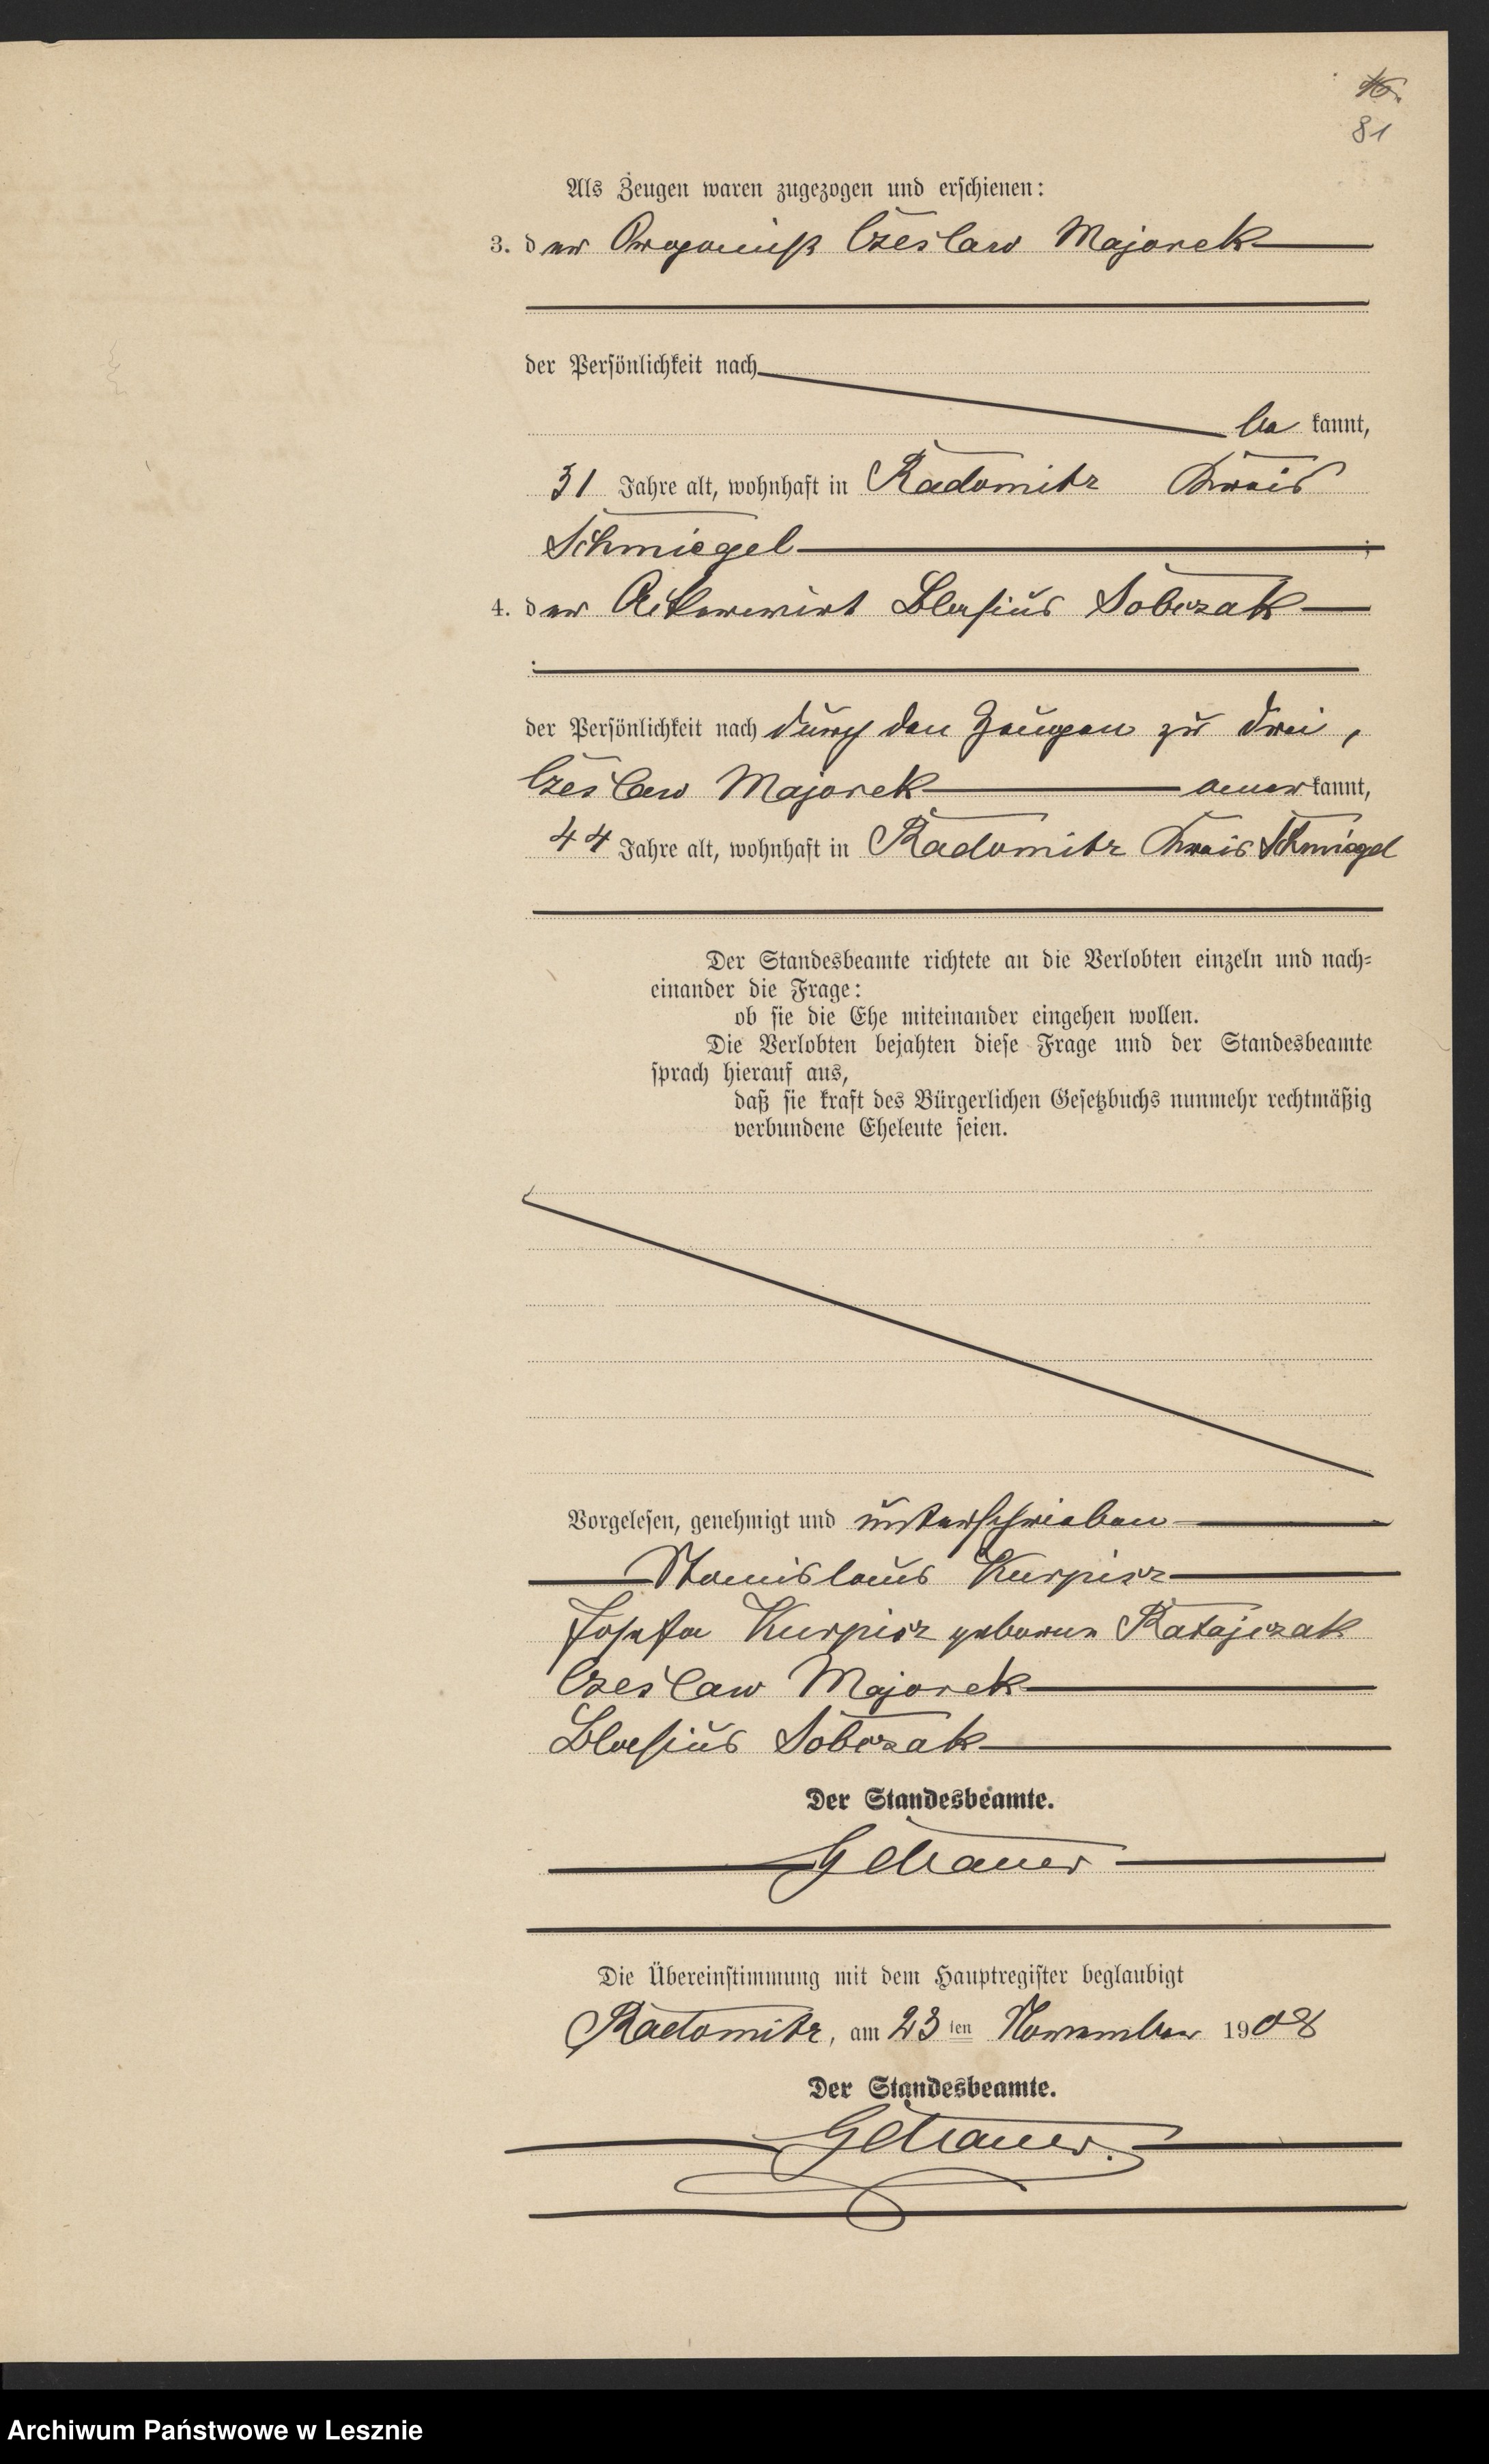 81
Als Zeugen waren zugezogen und erschienen:
3. der Organist Czeslaw Majorek
der Persönlichkeit nach
be kannt,
31 Jahre alt, wohnhaft in Radomitz Kreis
Schmiegel ;
4. der Ackerwirt Blasius Sobczak
der Persönlichkeit nach durch den Zeugen zu drei,
Czeslaw Majorek aner kannt,
44 Jahre alt, wohnhaft in Radomitz Kreis Schmiegel
Der Standesbeamte richtete an die Verlobten einzeln und nach-
einander die Frage:
ob sie die Ehe miteinander eingehen wollen.
Die Verlobten bejahten diese Frage und der Standesbeamte
sprach hierauf aus,
daß sie kraft des Bürgerlichen Gesetzbuchs nunmehr rechtmäßig
verbundene Eheleute seien.
Vorgelesen, genehmigt und unterschrieben
Stanislaus Kurpisz
Josefa Kurpisz geborene Ratajczak
Czeslaw Majorek
Blasius Sobczak
Der Standesbeamte.
Die Übereinstimmung mit dem Hauptregister beglaubigt
Radomitz, am 23 ten November 1908
Der Standesbeamte.
Archiwum Państwowe w Lesznie